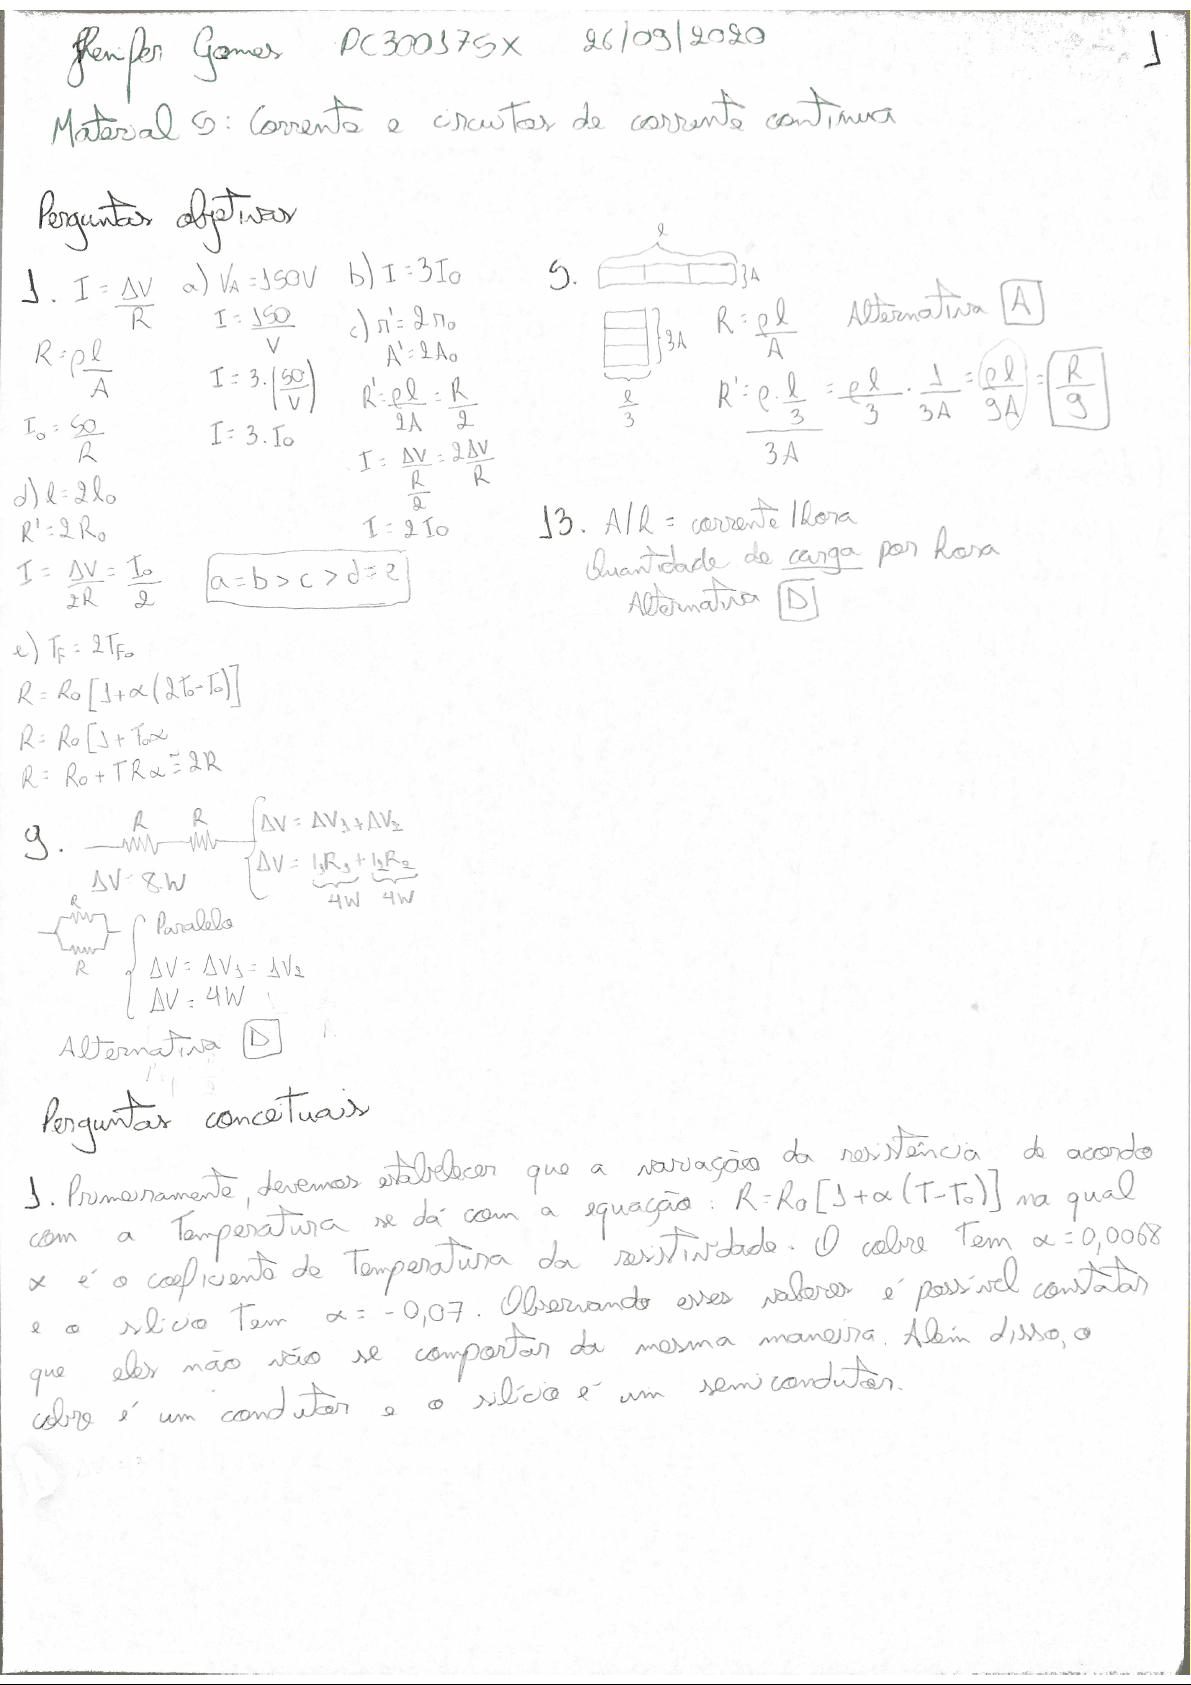 Jhenifer Gomes PC300175X 26/09/2020
1
Material 5: Corrente e circuitos de corrente contínua
Perguntas objetivas
1. I = ΔV/R
R = ρl/A
I₀ = 50/R
a) VA = 150V
I = 150/V
I = 3.(50/V)
I = 3.I₀
b) I = 3I₀
c) r' = 2r₀
A' = 2A₀
R' = ρl/2A = R/2
I = ΔV/(R/2) = 2ΔV/R
I = 2I₀
d) l = 2l₀
R' = 2R₀
I = ΔV/2R = I₀/2
a = b > c > d = e
e) TF = 2TF₀
R = R₀[1+α(2T₀-T₀)]
R = R₀[1+T₀α
R = R₀+TRα ≅ 2R
5. l
A
3A
l/3
R = ρl/A
Alternativa A
R' = ρ.(l/3)/3A = ρl/3 . 1/3A = ρl/9A = R/9
13. A/h = corrente/hora
Quantidade de carga por hora
Alternativa D
9. R R
ΔV = 8W
ΔV = ΔV₁+ΔV₂
ΔV = i₁R₁ + i₂R₂
4W 4W
R
R
Paralelo
ΔV = ΔV₁ = ΔV₂
ΔV = 4W
Alternativa D
Perguntas conceituais
1. Primeiramente, devemos estabelecer que a variação da resistência de acordo
com a temperatura se dá com a equação: R=R₀[1+α(T-T₀)] na qual
α é o coeficiente de temperatura da resistividade. O cobre tem α=0,0068
e o silício tem α = -0,07. Observando esses valores é possível constatar
que eles não vão se comportar da mesma maneira. Além disso, o
cobre é um condutor e o silício é um semicondutor.